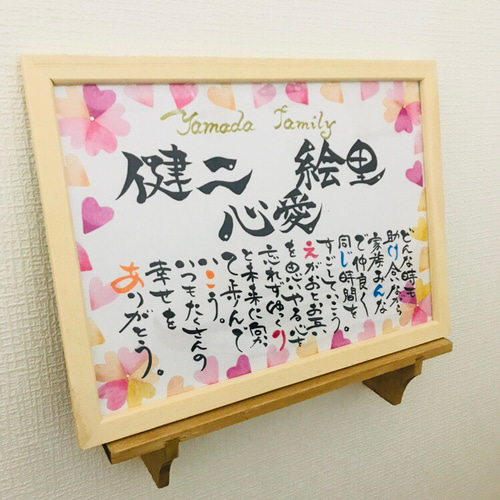 Yamada Family
健二 絵里
心愛
どんな時も
助け合いながら
家族みんな
で仲良く
同じ時間を
すごしていこう。
えがおとお互い
を思いやる心を
忘れずゆっくり
と未来に向かっ
て歩んで
いこう。
いつもたくさんの
幸せを
ありがとう。